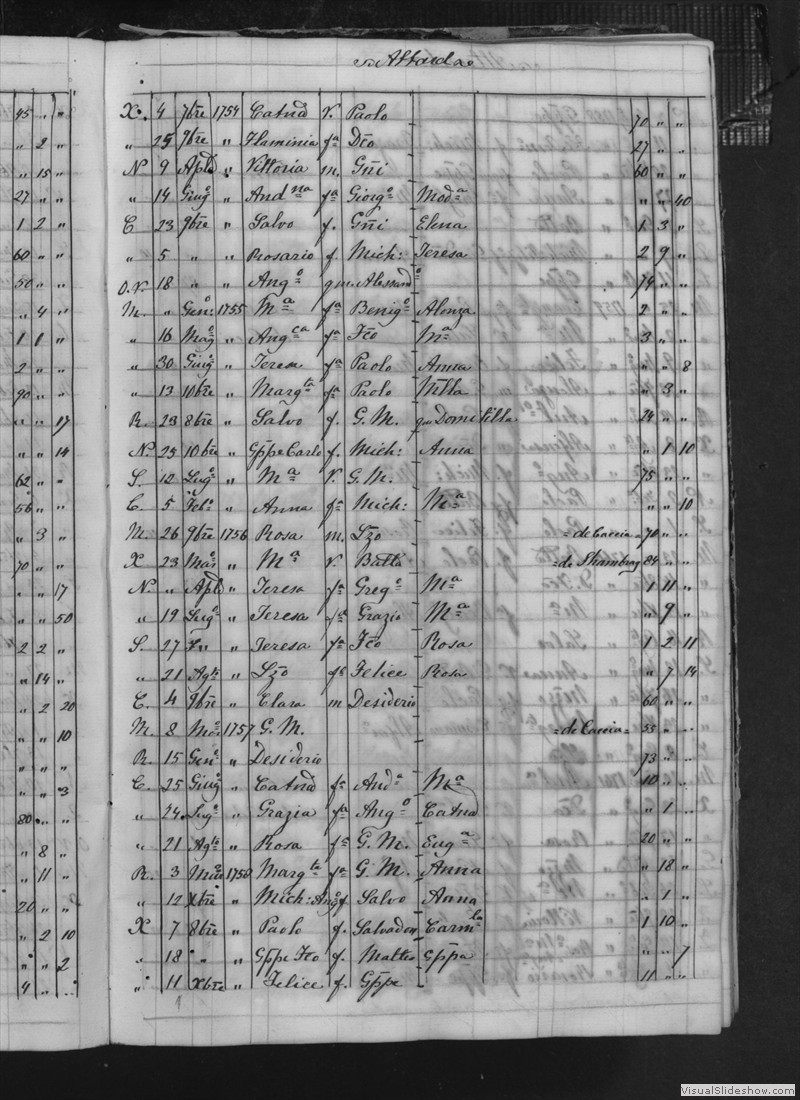 Attard
45 " "
X. 4 7bre 1754 Catna v. Paolo 70 " "
" 2 "
" 25 9bre " Flaminia fa Dto 27 " "
" 15 "
N. 9 Aple " Vittoria m. Gñi 60 " "
27 " "
" 14 Giugo " Andna fa Giorgo Moda " " 40
1 2 "
C 23 9bre " Salvo f. Gñi Elena 1 3 "
60 " "
" 5 " " Rosario f Mich: Teresa 2 9 "
50 " "
O.V. 18 " " Ango qm. Alessando 74 " "
" 4 "
M. " Geno: 1755 Ma fa Benigo Alonza 2 " "
1 1 "
" 16 Mago " Angca fa Fco Ma 3 " "
2 " "
" 30 Giugo " Teresa fa Paolo Anna " " 8
90 " "
" 13 10bre " Margta fa Paolo Mtta " 3 "
" " 17
R. 23 8bre " Salvo f. G. M. qm Domitilla 24 " "
" " 14
N. 25 10bre " Gppe Carlo f. Mich: Anna " 1 10
62 " "
S. 12 Lugo " Ma V. G. M. 75 " "
56 " "
C. 5 Febo " Anna fa Mich: Ma " " 10
" 3 "
M. 26 9bre 1756 Rosa m. Lzo = de Caccia = 70 " "
70 " "
X 23 Mar " Ma V Batta = de Shambray 84 " "
" " 17
N. " Aple " Teresa fa Grego Ma 1 11 "
" " 50
" 19 Lugo " Teresa fa Grazio Ma " 9 "
2 2 "
S. 27 " Teresa fa Fco Rosa 1 2 11
" 14 "
" 21 Agto " Lzo f Felice Rosa " 7 14
" 2 20
C. 4 9bre " Clara m Desiderio 60 " "
" " 10
M. 8 Mar 1757 G. M. = de Caccia = 55 " "
" " "
R. 15 Geno " Desiderio 73 " "
" " 3
C. 25 Giugo " Catna fa Anda Ma 10 " "
80 " "
" 24 Lugo " Grazia fa Ango Catna " 1 "
" 8 "
" 21 Agto " Rosa fa G. M. Euga 20 " "
" 11 "
R. 3 Margta fa G. M. Anna " 18 "
20 " "
" 12 Xbre " Mich: Ango f Salvo Anna " 1 "
" 2 10
X 7 8bre " Paolo f. Salvadore Carmla 1 10 "
" " 2
" 18 " " Gppe Fco f. Matteo Gppa " " 7
4 " "
" 11 Xbre " Felice f. Gppe 11 " "
VisualSlideshow.com